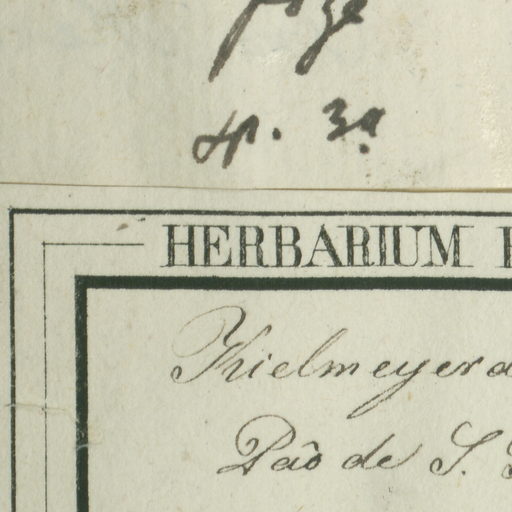 sp. 3ª
HERBARIUM
Kielmeyera
Paõ de S.